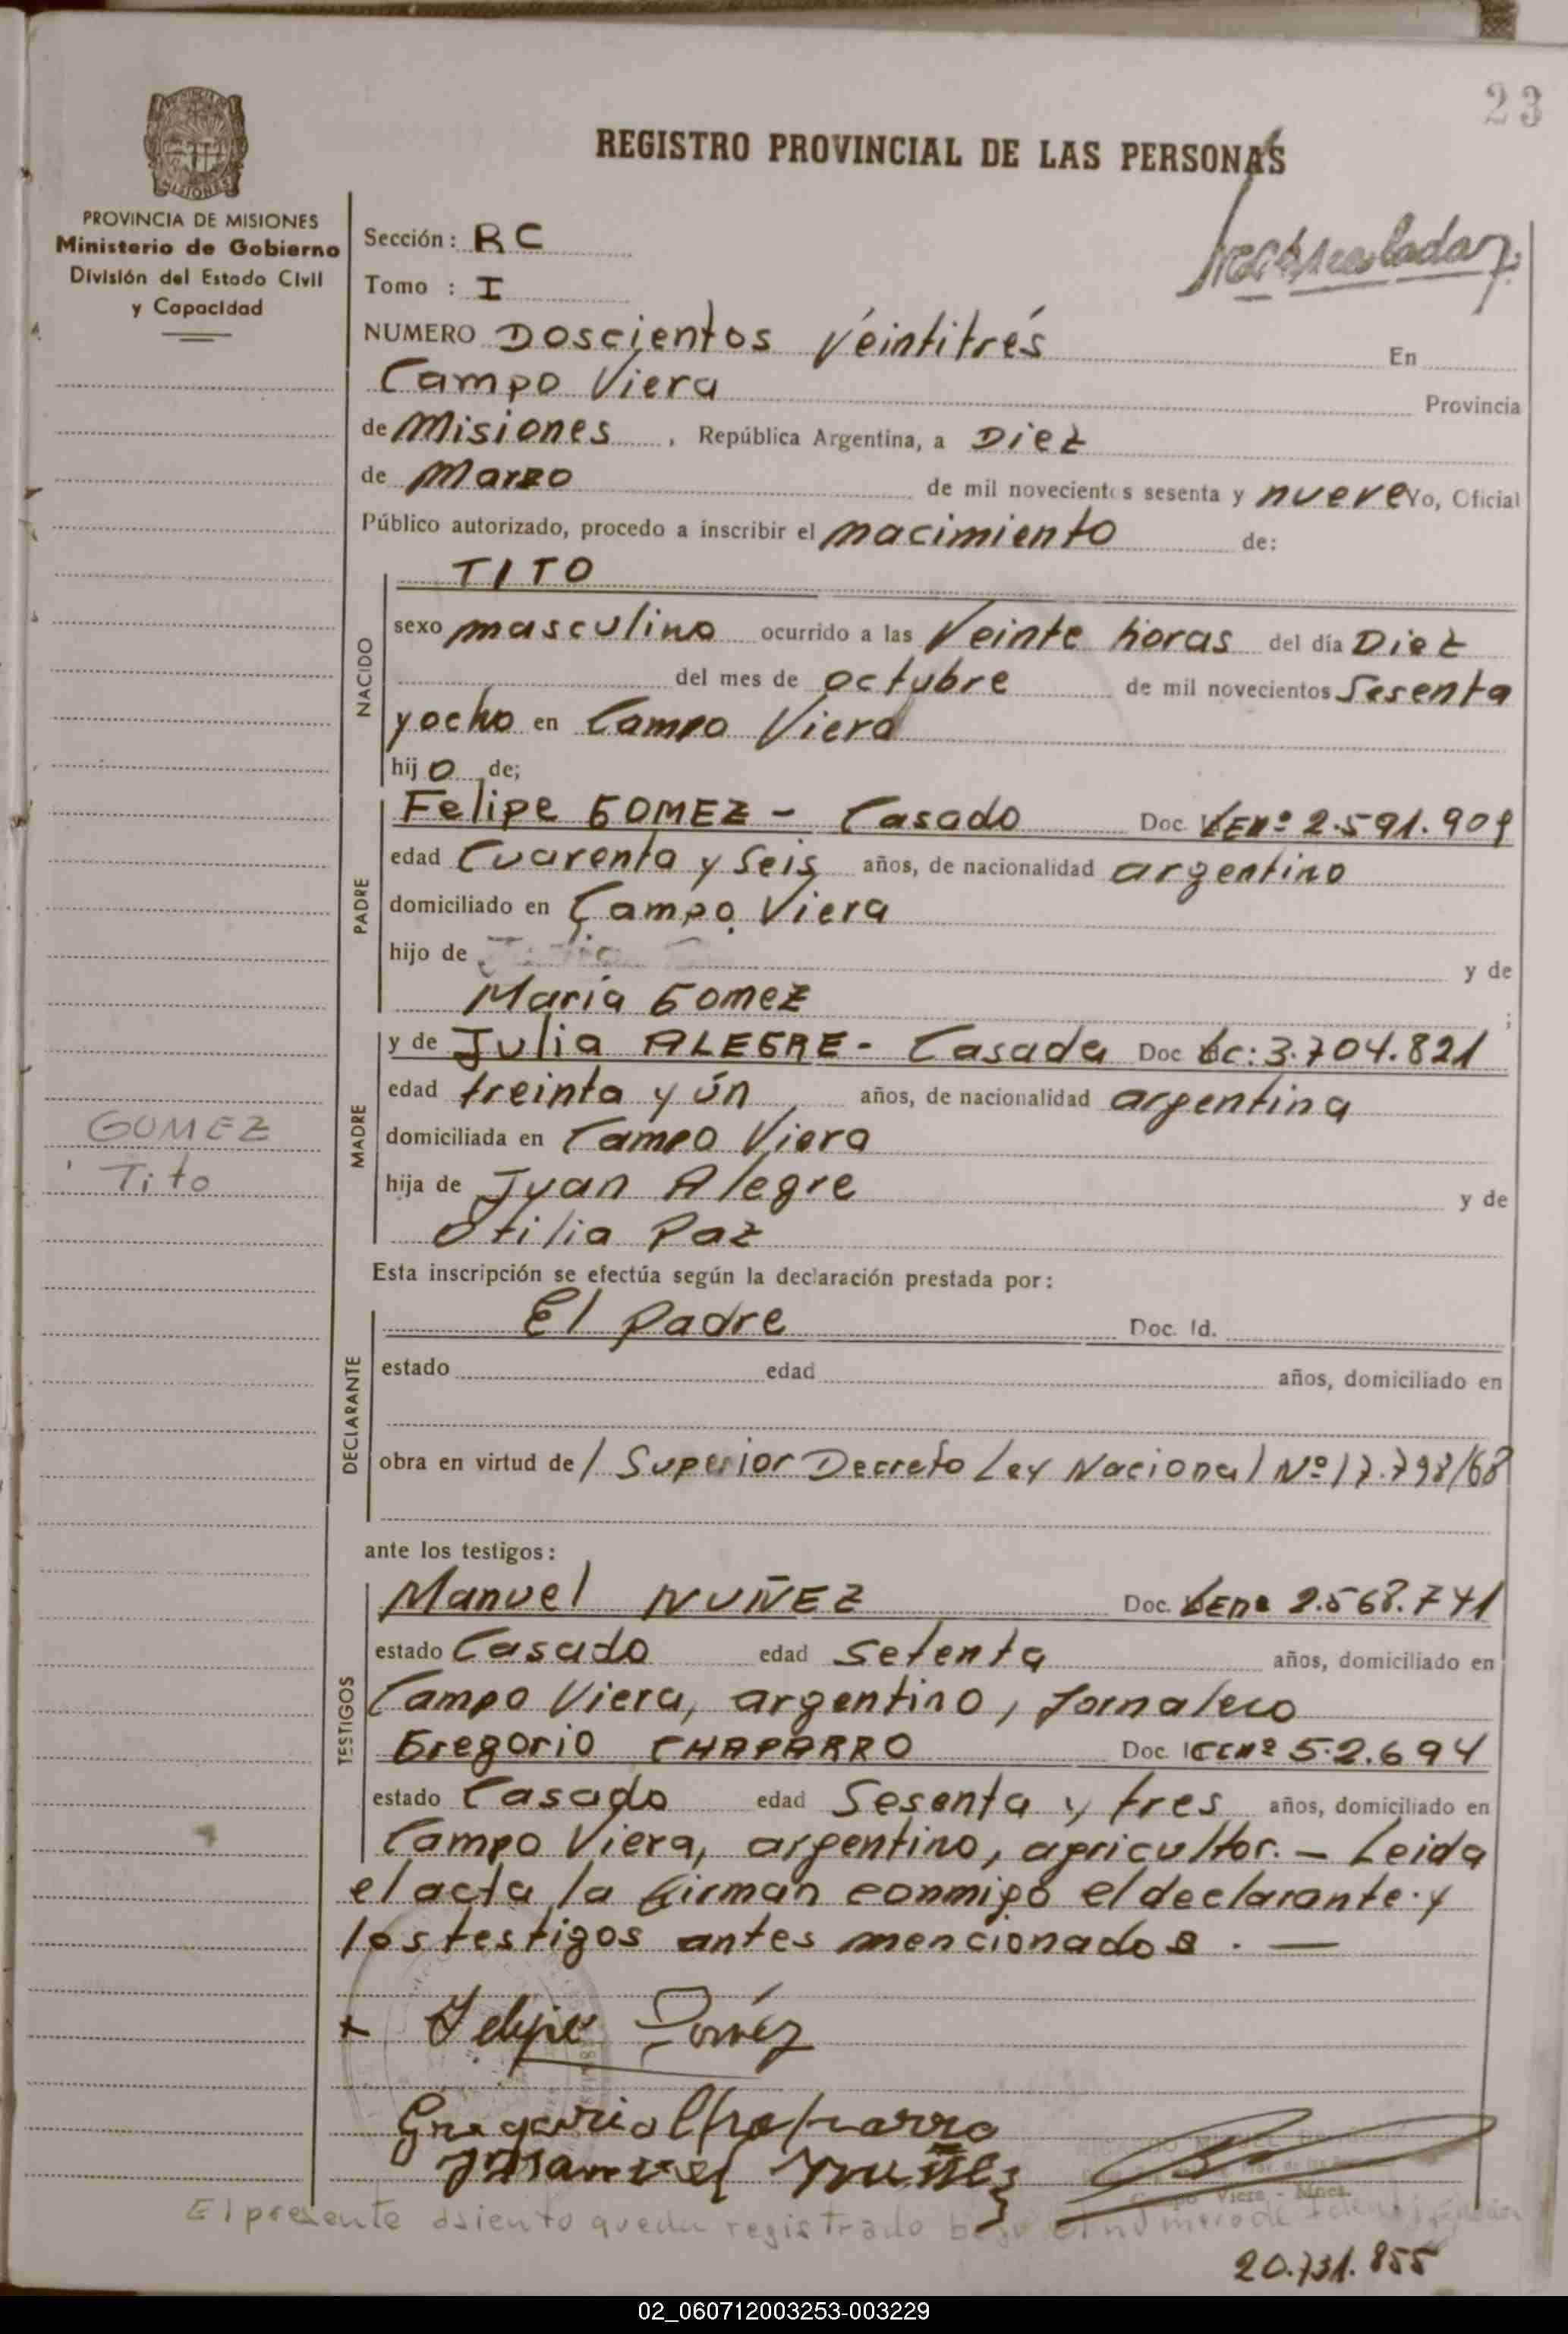 23
REGISTRO PROVINCIAL DE LAS PERSONAS
PROVINCIA DE MISIONES
Ministerio de Gobierno
División del Estado Civil
y Capacidad
Sección: RC
Tomo : I
NUMERO Doscientos Veintitrés En
Campo Viera Provincia
de Misiones, República Argentina, a Diez
de Marzo de mil novecientos sesenta y nueve Yo, Oficial
Público autorizado, procedo a inscribir el nacimiento de:
NACIDO
TITO
sexo masculino ocurrido a las Veinte horas del día Diez
del mes de octubre de mil novecientos Sesenta
y ocho en Campo Viera
hijo de;
PADRE
Felipe GOMEZ - Casado Doc. LEnº 2.591.909
edad Cuarenta y Seis años, de nacionalidad argentino
domiciliado en Campo Viera
hijo de y de
María Gomez ;
MADRE
y de Julia ALEGRE - Casada Doc Lc: 3.704.821
edad treinta y ún años, de nacionalidad argentina
domiciliada en Campo Viera
hija de Juan Alegre y de
Otilia Paz
GOMEZ
Tito
Esta inscripción se efectúa según la declaración prestada por:
DECLARANTE
El padre Doc. Id.
estado edad años, domiciliado en
obra en virtud de / Superior Decreto Ley Nacional Nº 17.798/68
ante los testigos:
TESTIGOS
Manuel NUÑEZ Doc. LEnº 2.568.741
estado Casado edad Setenta años, domiciliado en
Campo Viera, argentino, Jornalero
Gregorio CHAPARRO Doc. CCnº 52.694
estado Casado edad Sesenta y tres años, domiciliado en
Campo Viera, argentino, agricultor. - Leida
el acta la firman conmigo el declarante y
los testigos antes mencionados. -
Felipe Goméz
Gregorio Chaparro
Manuel Nuñez
Campo Viera - Mnes.
El presente asiento queda registrado bajo el número de
20.731.855
02_060712003253-003229